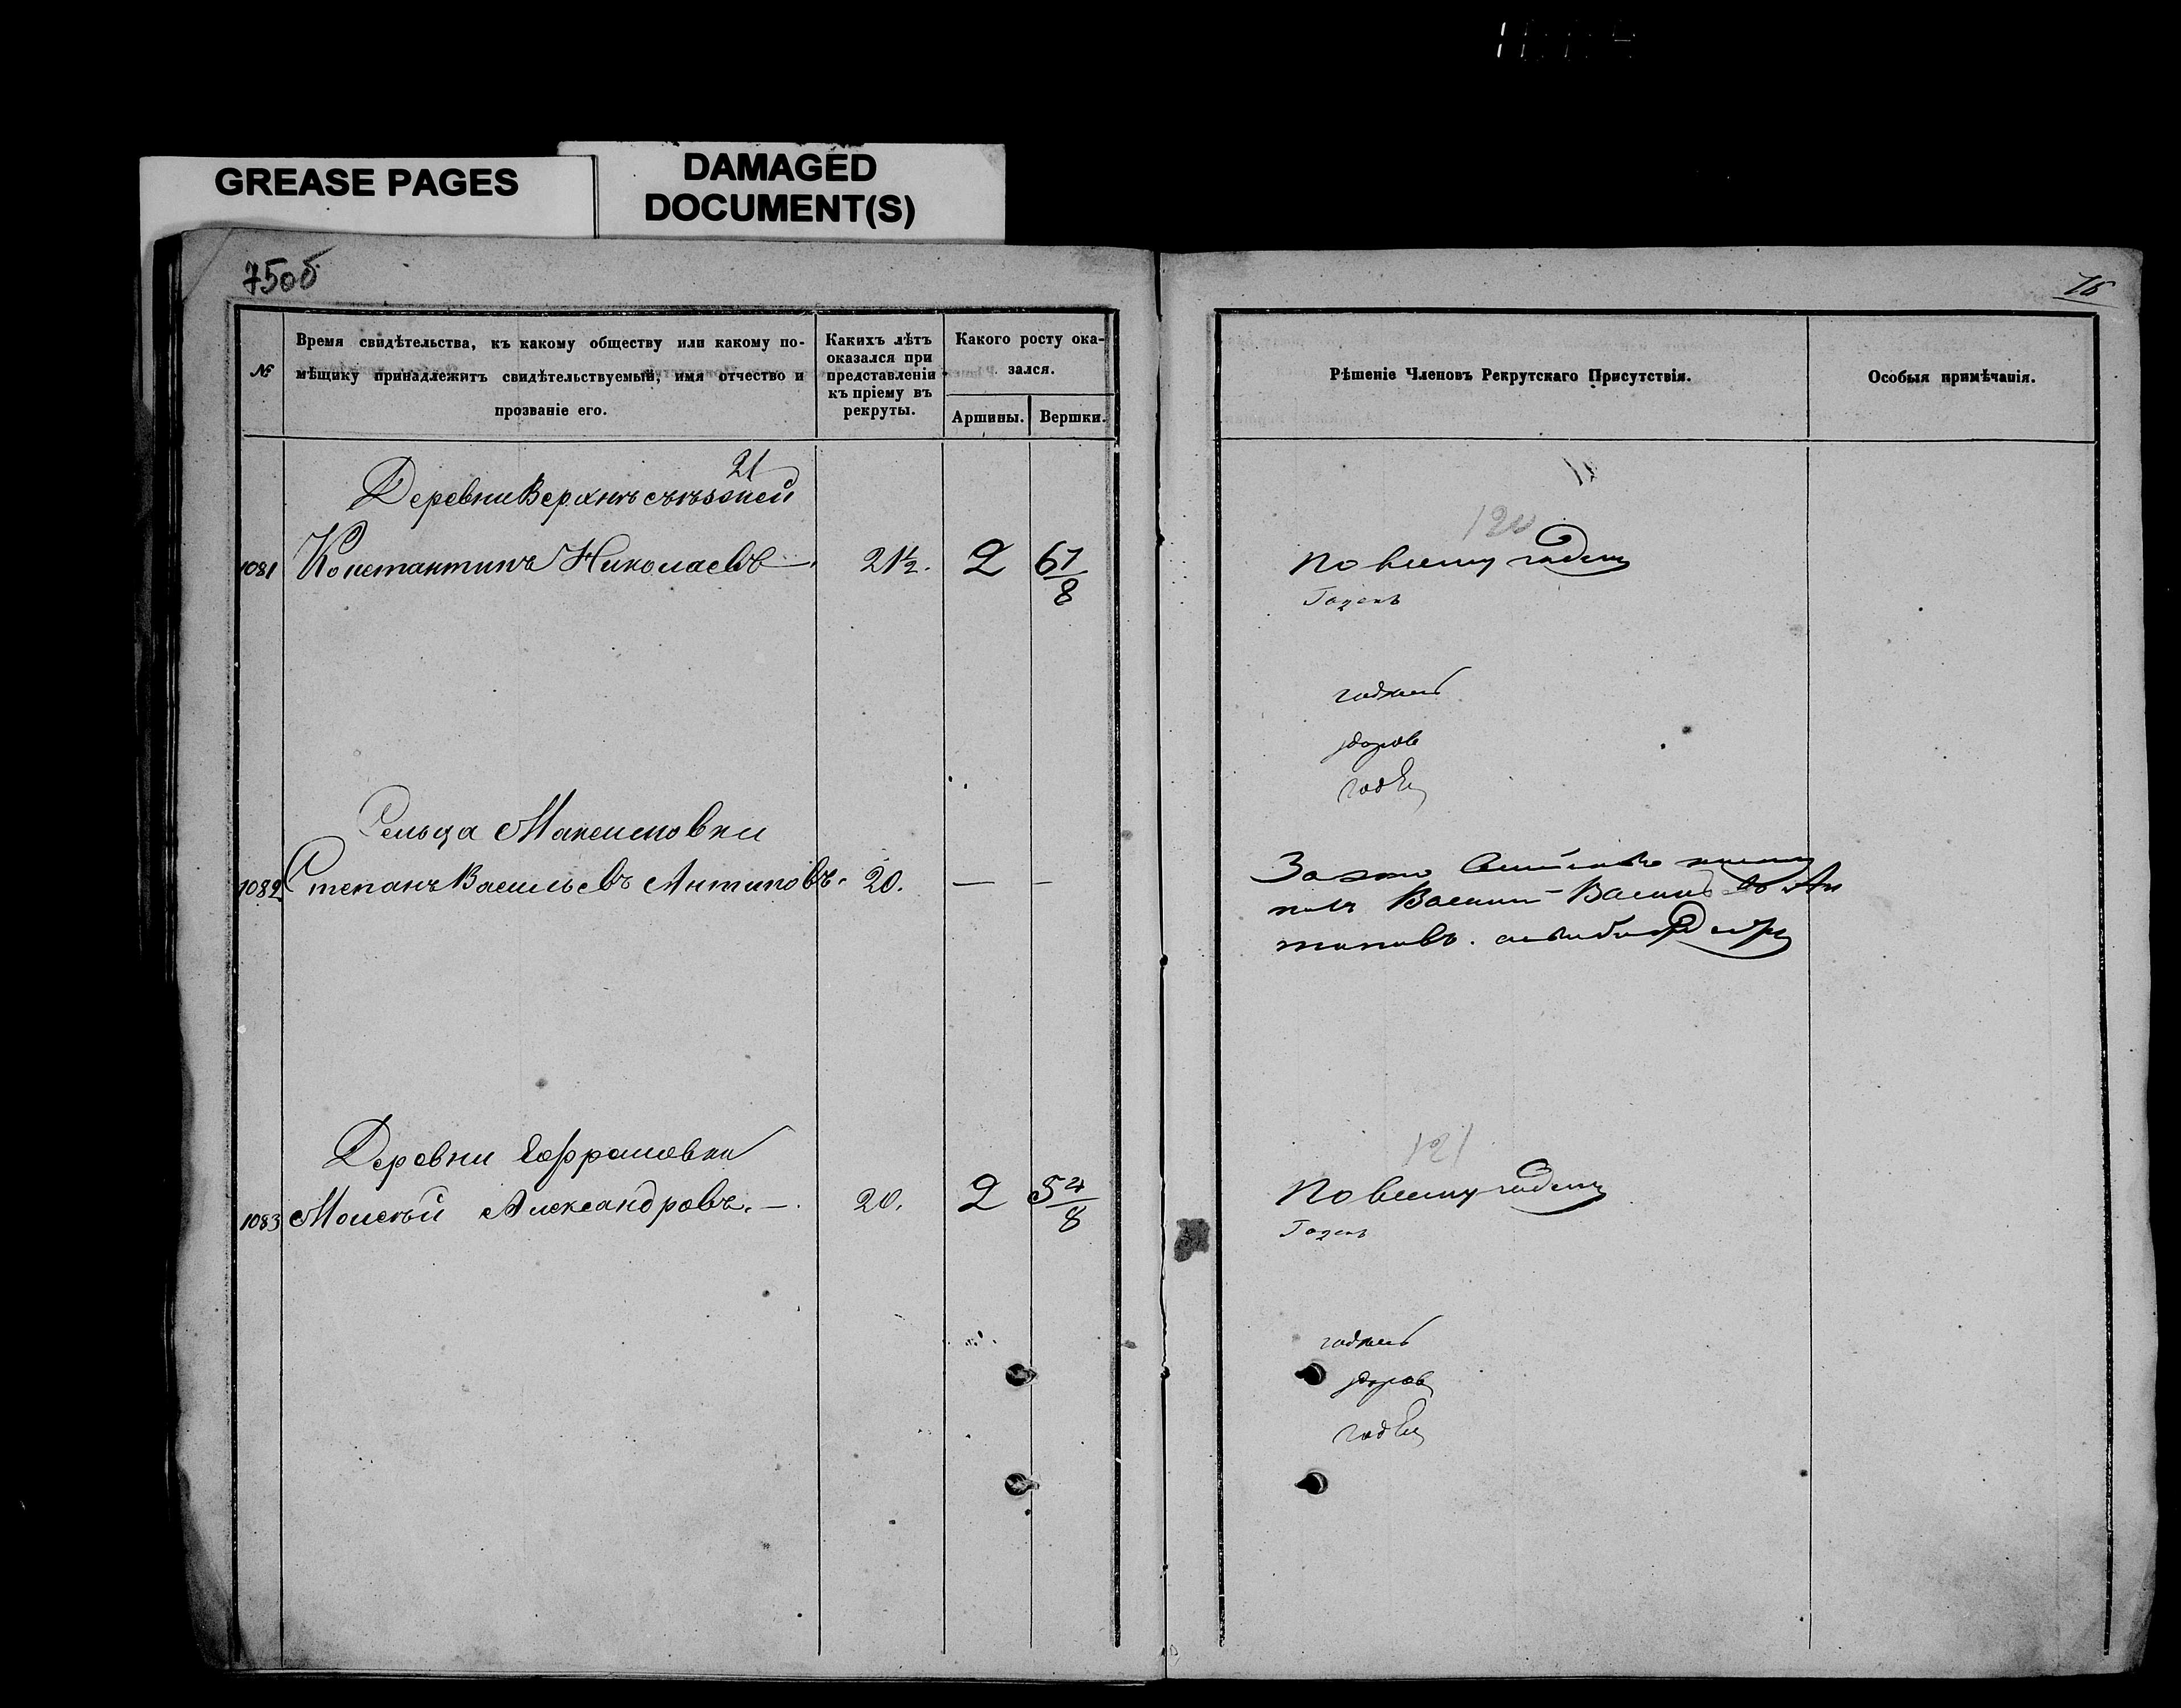 GREASE PAGES
DAMAGED
DOCUMENT(S)
75об
76
№
Время свидѣтельства, къ какому обществу или какому по-
мѣщику принадлежитъ свидѣтельствуемый, имя отчество и
прозваніе его.
Какихъ лѣтъ
оказался при
представленіи
къ пріему въ
рекруты.
Какого росту ока-
зался.
Аршины.
Вершки.
Рѣшеніе Членовъ Рекрутскаго Присутствія.
Особыя примѣчанія.
21
Деревни
1081 Константинъ Николаевъ 21½. 2 6 1/8
120
По всему годенъ
Годенъ
годенъ
здоровъ
годен
Сельца Максимовки
1082 Степанъ Васильевъ Антиповъ. 20. — —
За
Васил
Деревни
1083 Моисей Александровъ. — 20. 2 5 4/8
121
По всему годенъ
Годенъ
годенъ
здоров
годен